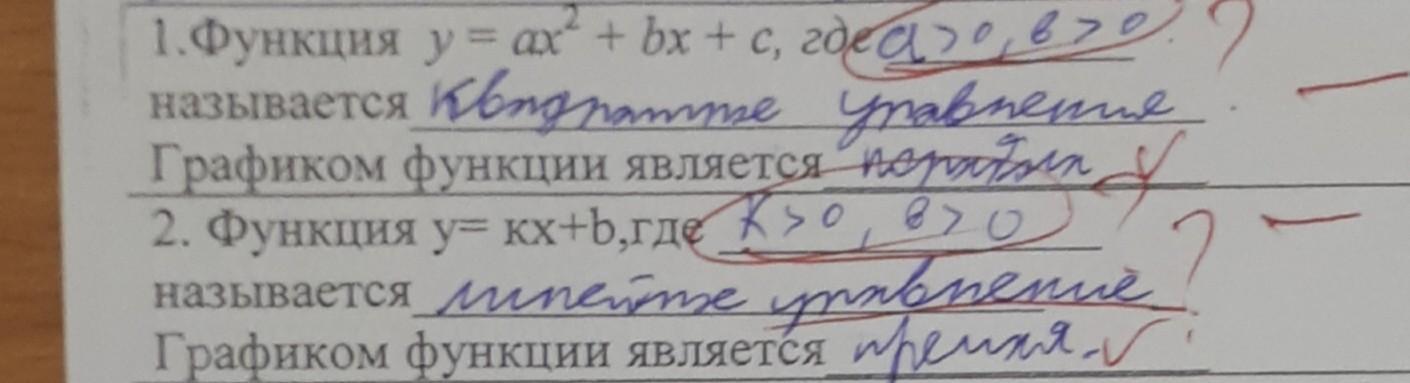 1.Функция y = ax² + bx + c, где a > 0, в > 0. ?
называется Квадратное уравнение.
Графиком функции является
2. Функция y= кx+b,где К > 0, в > 0 ?
называется линейное уравнение
Графиком функции является прямая.